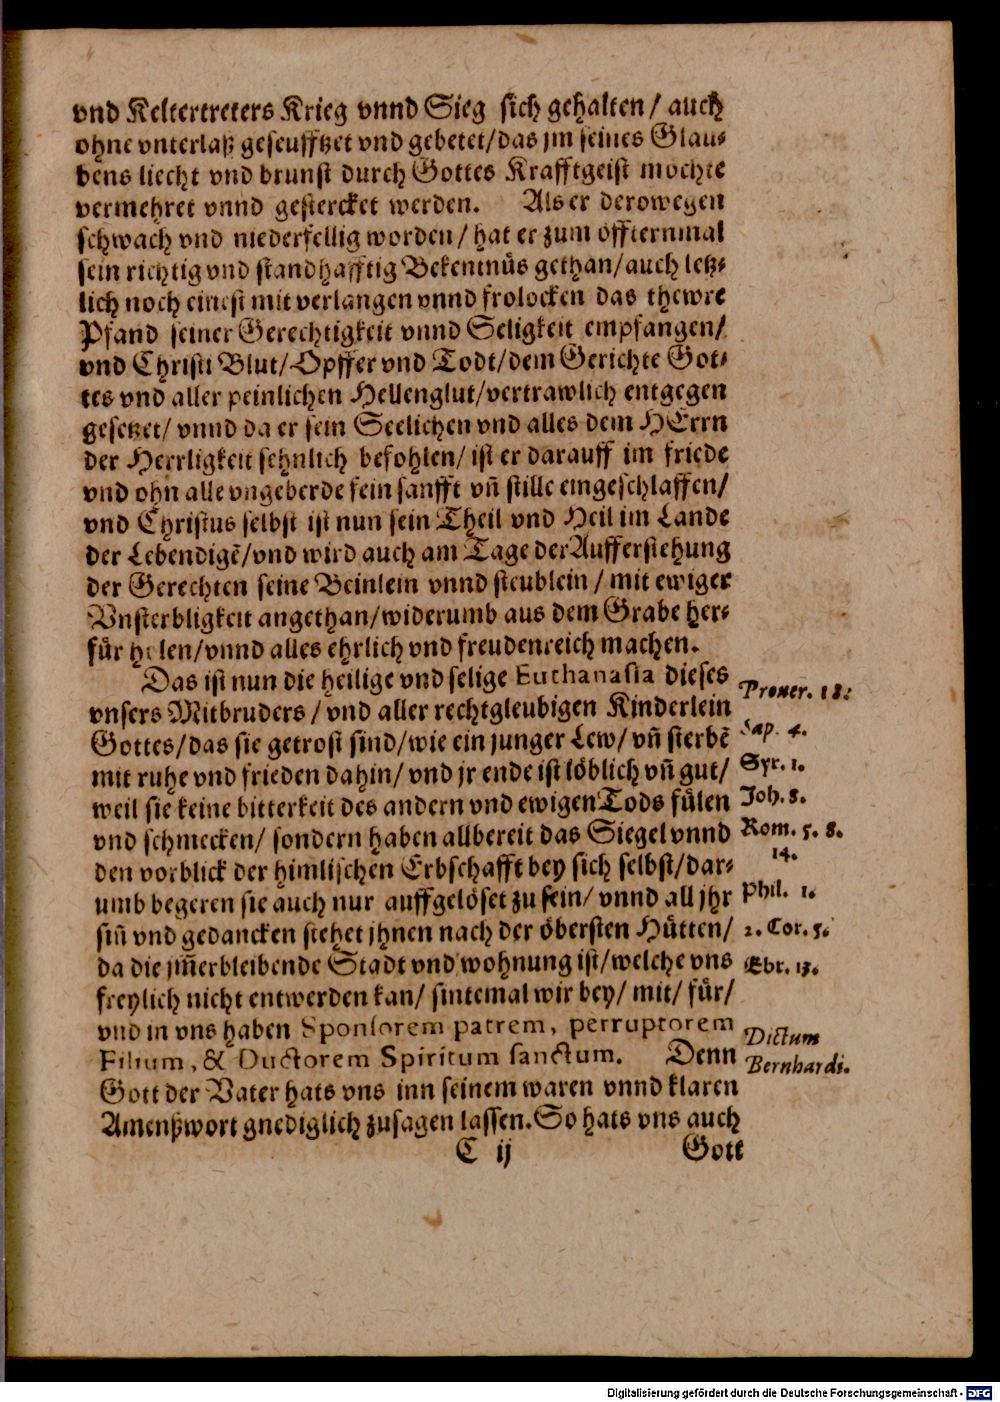 vnd Keltertreters Krieg vnnd Sieg sich gehalten/ auch
ohne vnterlaß geseufftzet vnd gebetet/das jm seines Glau-
bens liecht vnd brunst durch Gottes Krafftgeist mochte
vermehret vnnd gestercket werden. Als er derowegen
schwach vnd niederfellig worden/ hat er zum öffternmal
sein richtig vnd standhafftig Bekentnüs gethan/auch letz-
lich noch einest mit verlangen vnnd frolocken das thewre
Pfand seiner Gerechtigkeit vnnd Seligkeit empfangen/
vnd Christi Blut/Opffer vnd Todt/dem Gerichte Got-
tes vnd aller peinlichen Hellenglut/vertrawlich entgegen
gesetzet/ vnnd da er sein Seelichen vnd alles dem HErrn
der Herrligkeit sehnlich befohlen/ ist er darauff im friede
vnd ohn alle vngeberde fein sanfft vñ stille eingeschlaffen/
vnd Christus selbst ist nun sein Theil vnd Heil im Lande
der Lebendigẽ/vnd wird auch am Tage der Aufferstehung
der Gerechten seine Beinlein vnnd steublein/ mit ewiger
Vnsterbligkeit angethan/widerumb aus dem Grabe her-
für holen/vnnd alles ehrlich vnd freudenreich machen.
Das ist nun die heilige vnd selige Euthanasia dieses
vnsers Mitbruders/ vnd aller rechtgleubigen Kinderlein
Gottes/das sie getrost sind/wie ein junger Lew/ vñ sterbẽ
mit ruhe vnd frieden dahin/ vnd jr ende ist löblich vñ gut/
weil sie keine bitterkeit des andern vnd ewigen Tods fülen
vnd schmecken/ sondern haben allbereit das Siegel vnnd
den vorblick der himlischen Erbschafft bey sich selbst/dar-
umb begeren sie auch nur auffgelöset zu sein/ vnnd all jhr
siñ vnd gedancken stehet jhnen nach der öbersten Hütten/
da die jm̃erbleibende Stadt vnd wohnung ist/welche vns
freylich nicht entwerden kan/ sintemal wir bey/ mit/ für/
vnd in vns haben Sponsorem patrem, perruptorem
Filium, & Ductorem Spiritum sanctum. Denn
Gott der Vater hats vns inn seinem waren vnnd klaren
Amenßwort gnediglich zusagen lassen. So hats vns auch
C ij Gott
Prouer. 18.
Sap. 4.
Syr. 1.
Joh. 8.
Rom. 5. 8.
14.
Phil. 1.
2. Cor. 5.
Ebr. 13.
Dictum
Bernhardi.
Digitalisierung gefördert durch die Deutsche Forschungsgemeinschaft - DFG